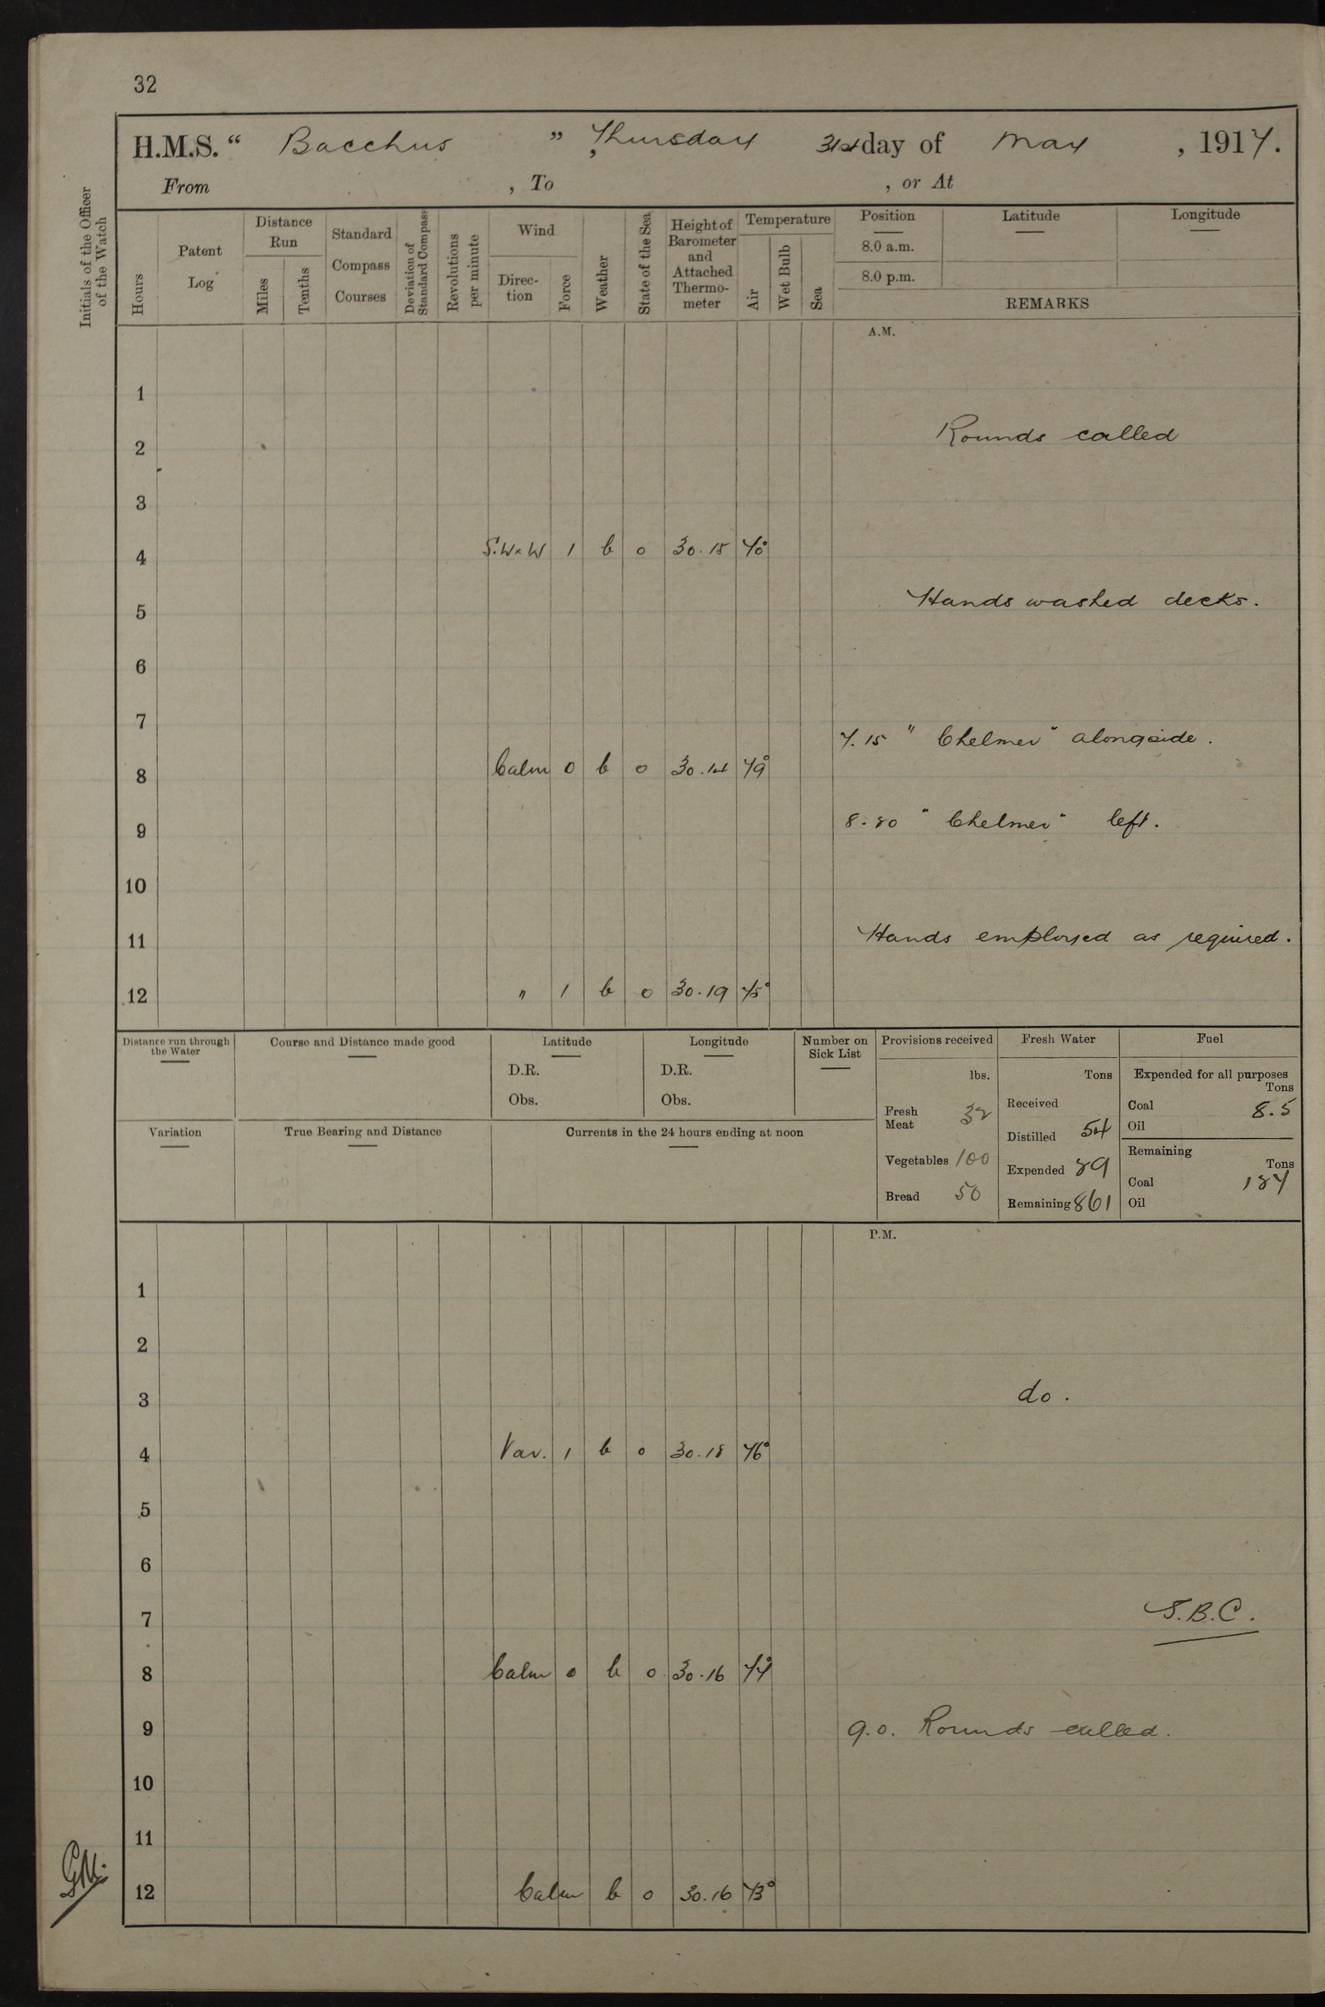 32
H.M.S. “ Bacchus ” , Thursday 31st day of May , 1917.
From , To , or At
Initials of the Officer of the Watch
Hours
Patent Log
Distance Run
Miles Tenths
Standard Compass Courses
Deviation of Standard Compass
Revolutions per minute
Wind
Direc-tion Force
Weather
State of the Sea
Height of Barometer and Attached Thermo-meter
Temperature
Air Wet Bulb Sea
Position Latitude Longitude
8.0 a.m.
8.0 p.m.
REMARKS
A.M.
1
2 Rounds called
3
4 S.W×W 1 b 0 30.15 70°
5 Hands washed decks.
6
7 7.15 " Chelmer " alongside.
8 Calm 0 b 0 30.14 79°
9 8.20 " Chelmer " left.
10
11 Hands employed as required.
12 " 1 b 0 30.19 75°
Distance run through the Water
Course and Distance made good
Latitude
D.R.
Obs.
Longitude
D.R.
Obs.
Number on Sick List
Variation
True Bearing and Distance
Currents in the 24 hours ending at noon
Provisions received
lbs.
Fresh Meat 32
Vegetables 100
Bread 50
Fresh Water
Tons
Received
Distilled 54
Expended 29
Remaining 861
Fuel
Expended for all purposes
Tons
Coal 8.5
Oil
Remaining
Tons
Coal 187
Oil
P.M.
1
2
3 do.
4 Var. 1 b 0 30.18 76°
5
6
7 S.B.C.
8 Calm 0 b 0 30.16 77°
9 9.0. Rounds called.
10
11
12 Calm b 0 30.16 73°